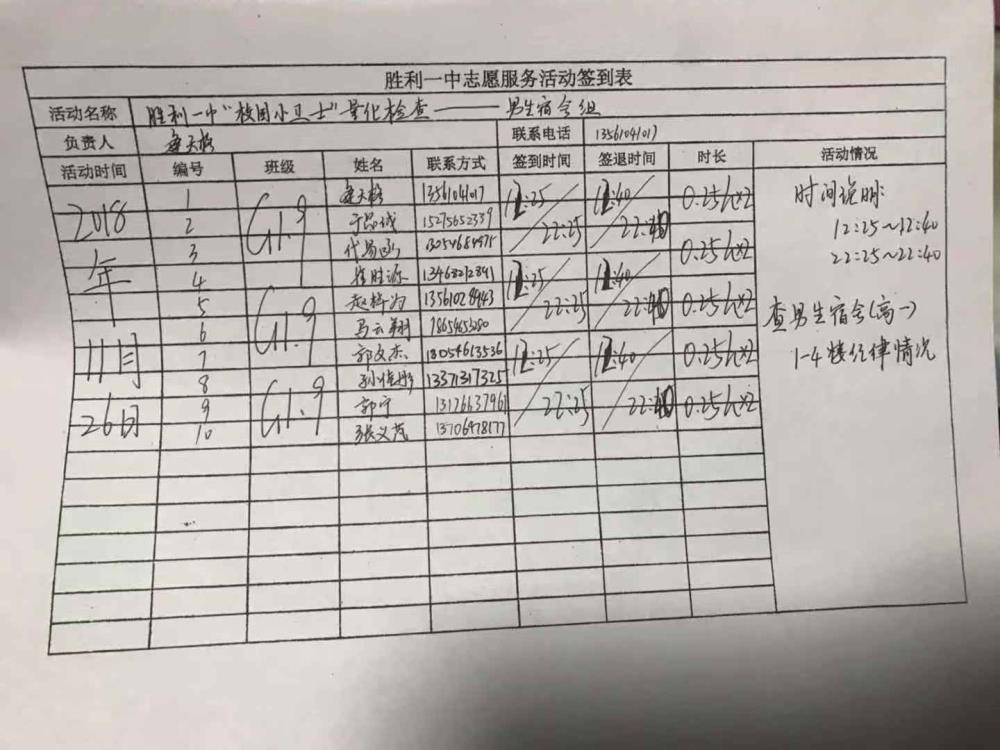 胜利一中志愿服务活动签到表
活动名称 胜利一中"校园小卫士"量化检查——男生宿舍组
负责人 联系电话 13561041017
活动时间 编号 班级 姓名 联系方式 签到时间 签退时间 时长 活动情况
2018年11月26日 G1.9 12:25/22:25 12:40/22:40 0.25h×2
1
2 15275652339
3
4
5 赵梓为 13561028943
6 马云翔
7 郭文杰 13054613536
8 13371317325
9 郭宁 13126637961
10 张义茂 13706478177
G1.9 12:25/22:25 12:40/22:40 0.25h×2
G1.9 12:25/22:25 12:40/22:40 0.25h×2
0.25h×2
0.25h×2
0.25h×2
时间说明:
12:25~12:40
22:25~22:40
查男生宿舍(高一)
1-4楼纪律情况